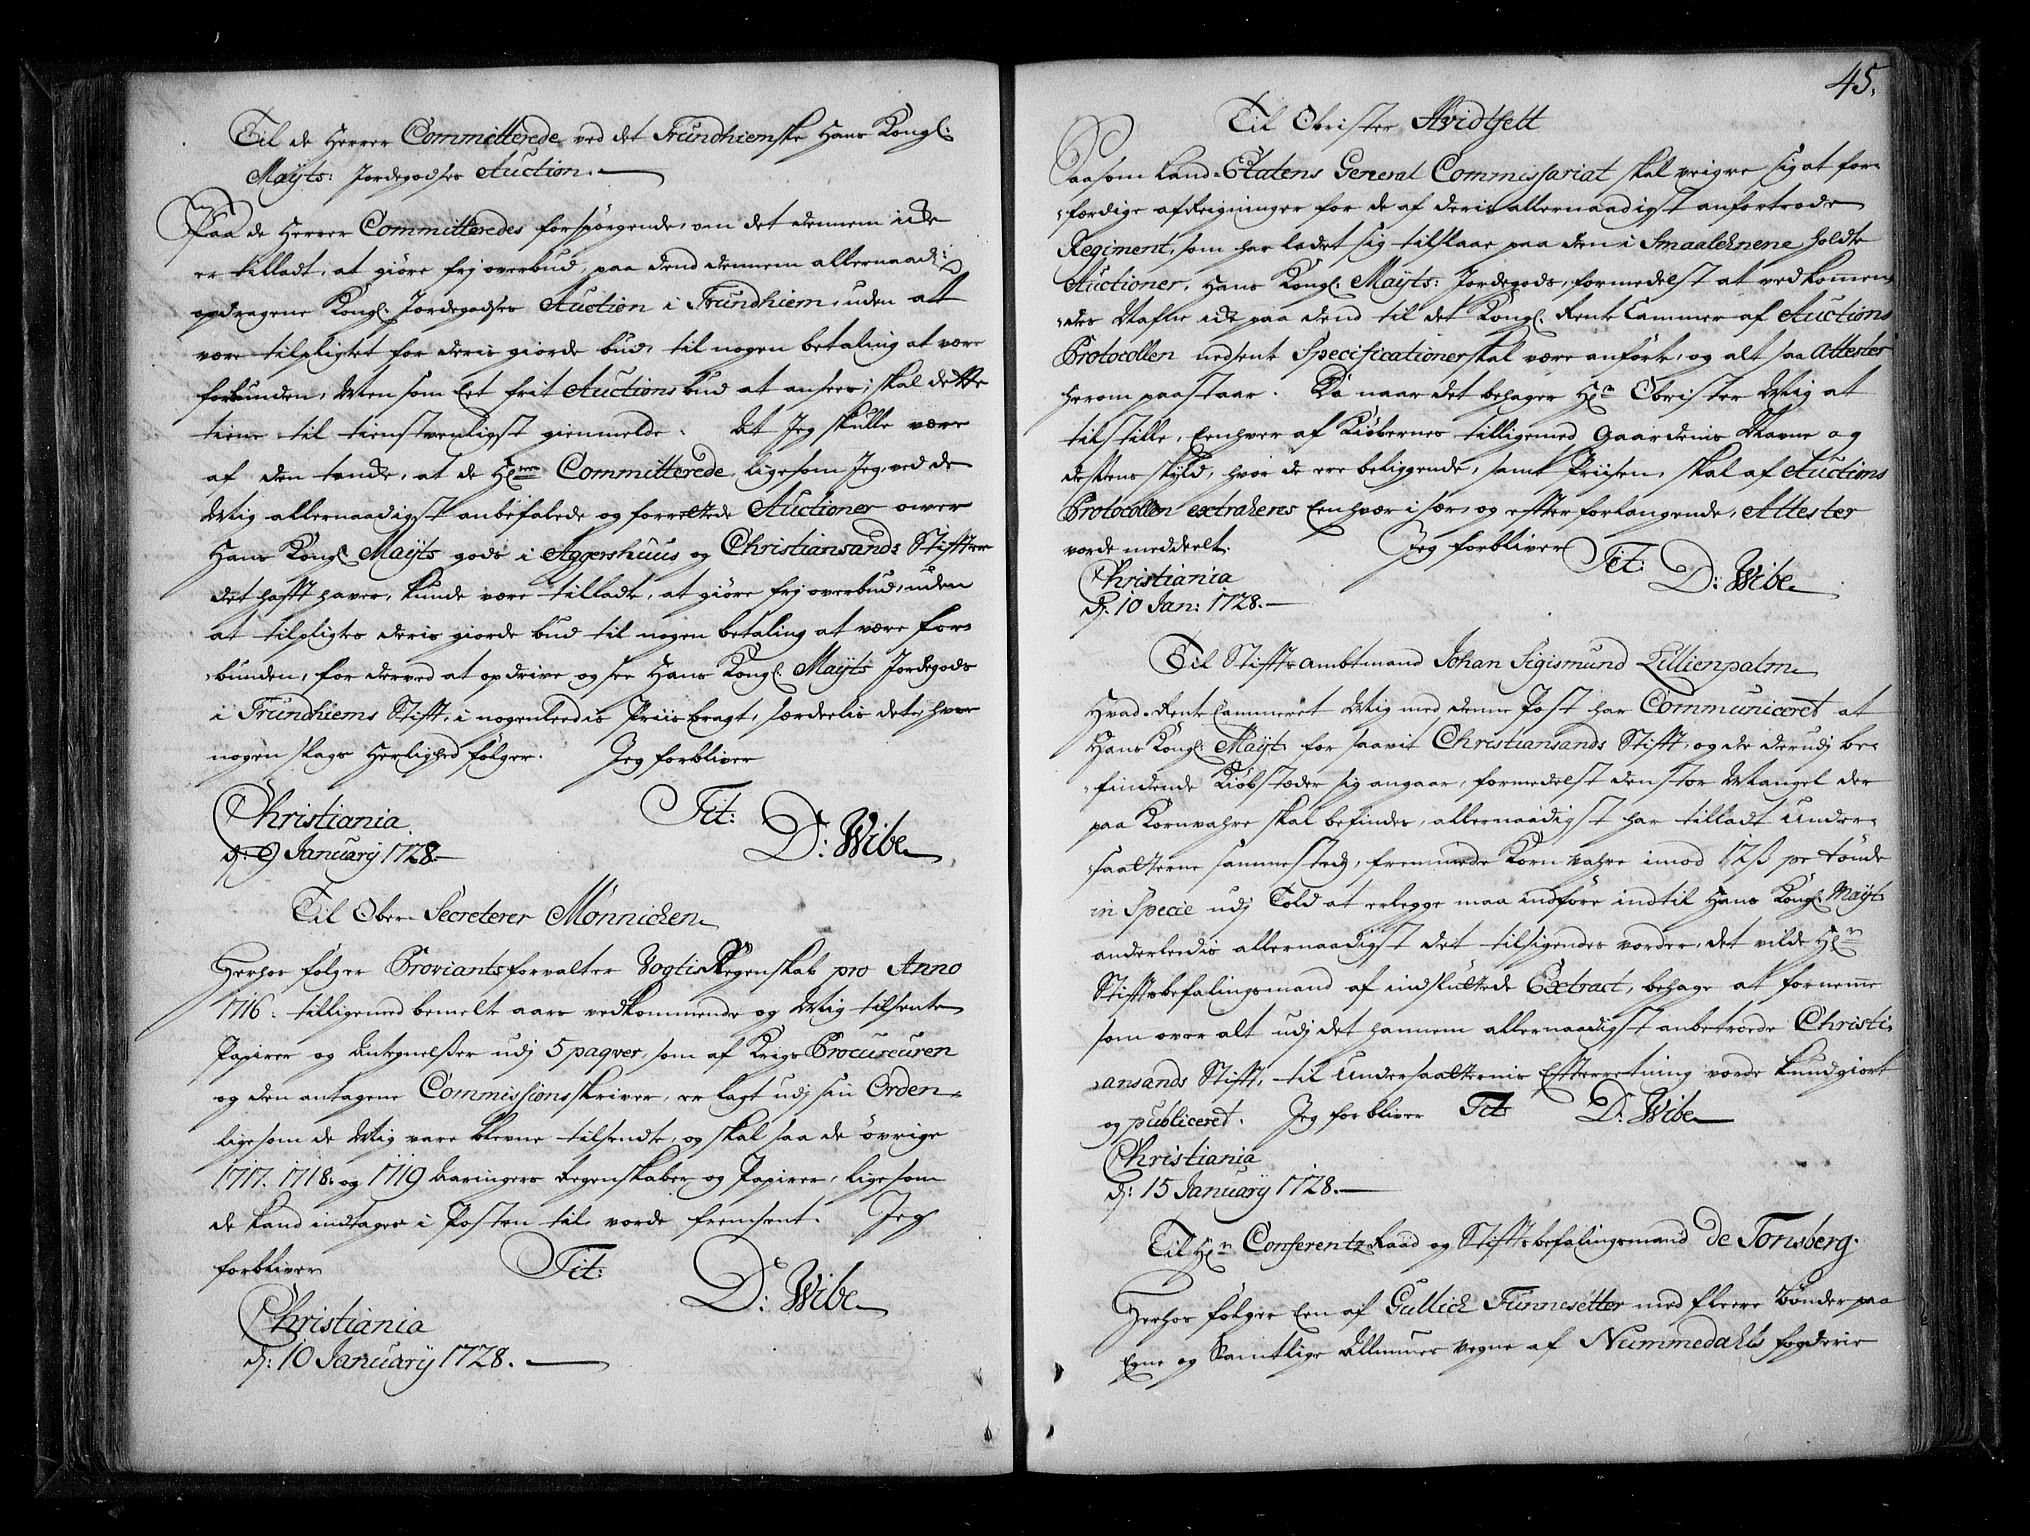 Til de Herrer Committerede ved det Trundhiemske Hans Kongl:
Mayts: Jordegodses Auction.
Paa de Herrer Committeredes forspörgende, om det dennem icke
er tilladt, at giöre frj overbud, paa dend dennem allernaad:
opdragene Kongl: Jordegodses Auction i Trundhiem, uden at
være tilpligtet for deris giorde bud, til nogen betaling at være
forbunden, Men som Eet frit Auctions bud at ansees; skal dette
tiene til tienstvenligst gienmelde. At Jeg skulle være
af den tancke, at de Hrr: Committerede, ligesom Jeg, ved de
Mig allernaadigst anbefalede og forrettede Auctioner over
Hans Kongl: Mayts gods i Aggershuus og Christiansands Stiffter
det hafft haver, kunde være tilladt, at giöre frj overbud, uden
at tilpligtes deris giorde bud til nogen betaling at være for-
bunden, for derved at opdrive og see Hans Kongl: Mayts Jordegods
i Trundhiems Stifft, i nogenleedis Priis bragt, særdeelis dete, hvor
nogen skags Herlighed fölger. Jeg forbliver
Tit:
Christiania
d: 9 January 1728.
D: Wibe
Til Ober Secreterer Mönnichen
Herhos fölger Proviantsforvalter Vogtis Regenskab pro Anno
1716. tilligemed bemelte aars vedkommende og Mig tilsente
Papirer og Antegnelsser udj 5 paqver, som af Krigs Procureuren
og den antagene Commissionsskriver, er lagt udj sin Orden,
ligesom de Mig vare blevne tilsendte, og skal saa de övrige
1717. 1718. og 1719 Aaringers Regenskaber og Papirer, lige som
de kand indtages i Posten til vorde fremsent. Jeg
forbliver
Tit:
D: Wibe
Christiania
d: 10 January 1728.
45.
Til Obrister Hvidtfelt
Saasom Land-Etatens General Commissariat skal veigre sig at for-
færdige afreigninger for de af deris allernaadigst anfortrode
Regiment, som har ladet sig tilslaae paa den i Smaalehnene holdte
Auctioner, Hans Kongl: Mayts: Jordegods, formedelst at vedkommen-
des Nafne icke paa dend til det Kongl: Rente Cammer af Auctions
Protocollen nedsente Specificationer skal være anförte, og alt saa Attester
herom paastaar. Da naar det behager Hr: Obrister Mig at
tilstille, Eenhver af Kiöbernes tilligemed Gaardenis Navne og
dessens skyld, hvor de ere beliggende, samt Priisen, skal af Auctions
Protocollen extraheres Eenhver i sær, og effter forlangende, Attester
vorde meddeelt. Jeg forbliver Tit:
D: Wibe
Christiania
d: 10 Jan: 1728.
Til Stifftsambtmand Johan Sigismund Lillienpalm
Hvad Rente Cammeret Mig med denne Post har Communiceret at
Hans Kongl: Mayt for saavit Christiansands Stifft, og de derudj be-
findende Kiöbstæder sig angaar, formedelst den stor Mangel der
paa Kornvahre skal befindes, allernaadigst har tilladt Under-
saatterne sammesteds, fremmede Korn vahre imod 12 ß pr tönde
in Specie udj Told at erlegge maa indföre indtil Hans Kongl: Mayt
anderleedis allernaadigst det tilsigendes vorder, det vilde Hr:
Stifftsbefalingsmand af indsluttede Extract, behage at fornemme
som over alt udj det hannem allernaadigst anbetroede Christi-
ansands Stifft, til Undersaatternis Efterretning vorde kundgiort
og publiceret. Jeg forbliver Tit
D: Wibe
Christiania
d: 15 January 1728.
Til Hr: Conferentz Raad og Stifftsbefalingsmand de Tonsberg.
Herhos fölger Een af Gullich Funnesetter med fleere Bönder paa
Egne og Samtlige Allmues vegne af Nummedahls fogderie